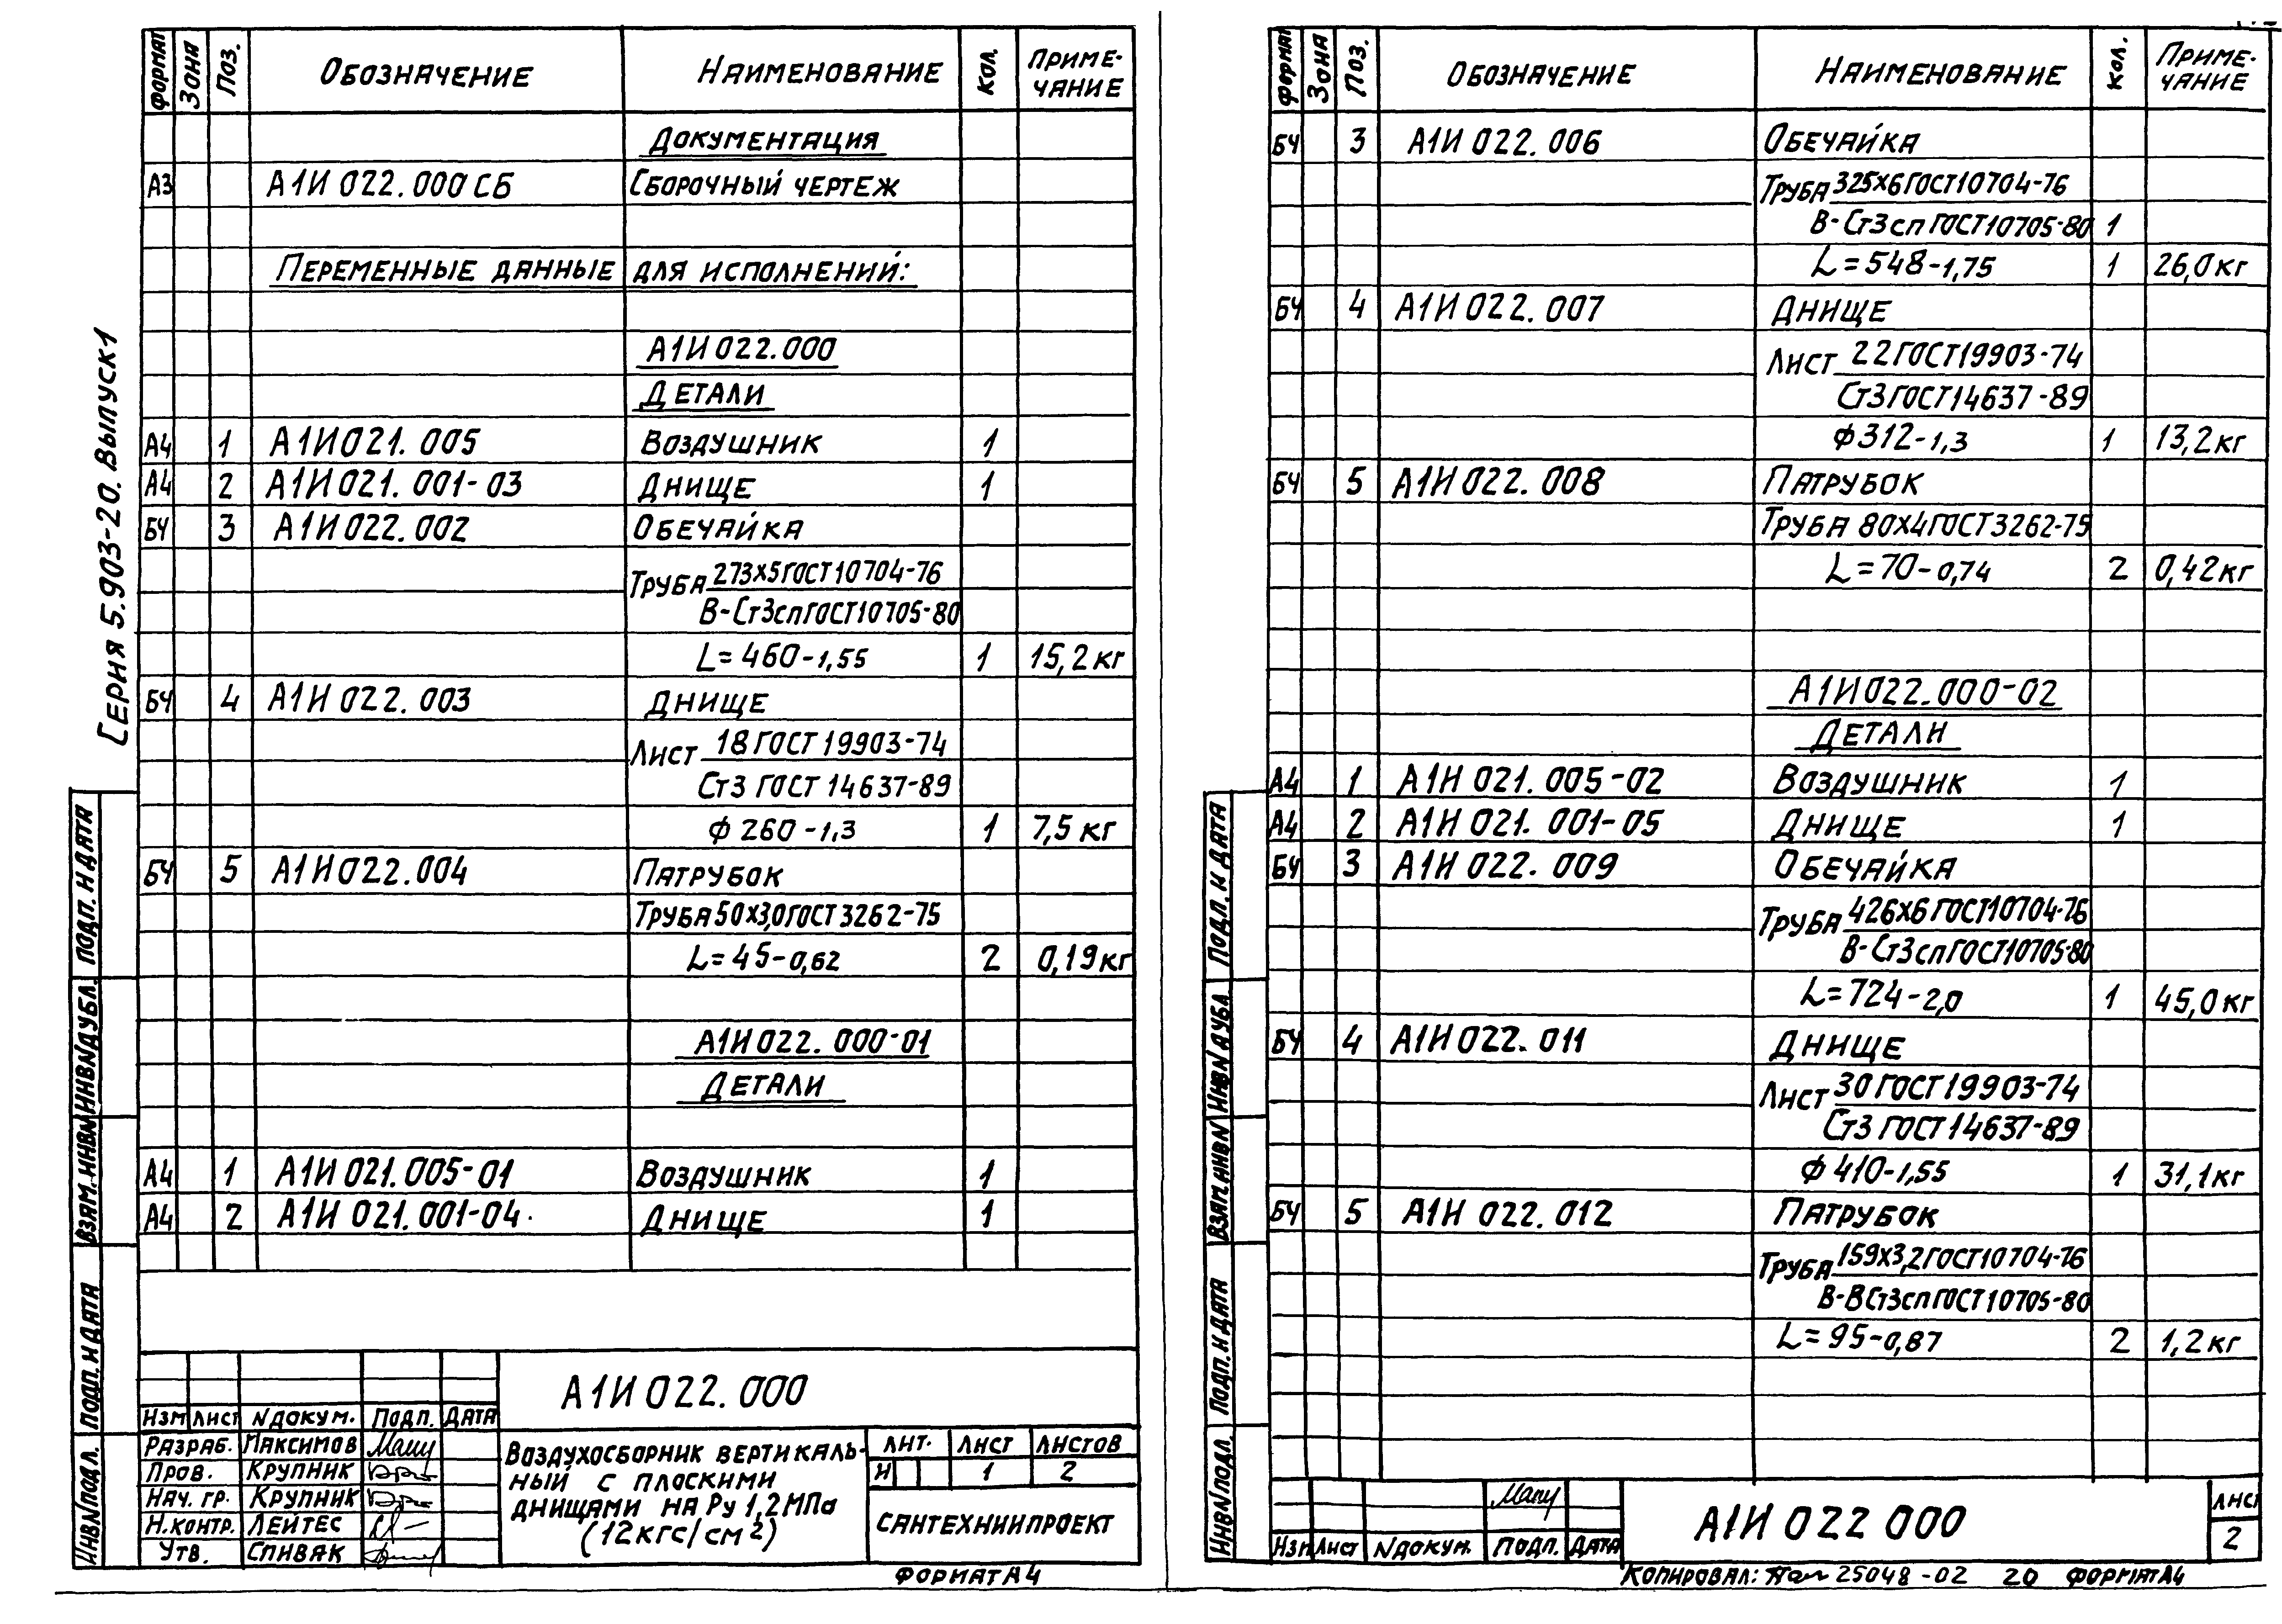 Серия 5.903-20. Выпуск1
Формат Зона Поз. Обозначение Наименование Кол. Приме-
чание
Документация
А3 А1И 022.000 СБ Сборочный чертеж
Переменные данные для исполнений:
А1И 022.000
Детали
А4 1 А1И 021.005 Воздушник 1
А4 2 А1И 021.001-03 Днище 1
БЧ 3 А1И 022.002 Обечайка
Труба 273х5 ГОСТ 10704-76
В-Ст3сп ГОСТ 10705-80
L=460-1,55 1 15,2 кг
БЧ 4 А1И 022.003 Днище
Лист 18 ГОСТ 19903-74
Ст3 ГОСТ 14637-89
ф 260-1,3 1 7,5 кг
БЧ 5 А1И 022.004 Патрубок
Труба 50х3,0 ГОСТ 3262-75
L=45-0,62 2 0,19 кг
А1И 022.000-01
Детали
А4 1 А1И 021.005-01 Воздушник 1
А4 2 А1И 021.001-04. Днище 1
Подп. и дата
Инв N дубл.
Взам. инв N
Подп. и дата
Инв N подл.
А1И 022.000
Изм Лист N докум. Подп. Дата
Разраб. Максимов
Пров. Крупник
Нач. гр. Крупник
Н.контр. Лейтес
Утв. Спивак
Воздухосборник вертикаль-
ный с плоскими
днищами на Ру 1,2 МПа
(12 кгс/см2)
Лит. Лист Листов
И 1 2
Сантехниипроект
Формат А4
Формат Зона Поз. Обозначение Наименование Кол. Приме-
чание
БЧ 3 А1И 022.006 Обечайка
Труба 325х6 ГОСТ 10704-76
В-Ст3сп ГОСТ 10705-80 1
L=548-1,75 1 26,0 кг
БЧ 4 А1И 022.007 Днище
Лист 22 ГОСТ 19903-74
Ст3 ГОСТ 14637-89
ф 312-1,3 1 13,2 кг
БЧ 5 А1И 022.008 Патрубок
Труба 80х4 ГОСТ 3262-75
L=70-0,74 2 0,42 кг
А1И 022.000-02
Детали
А4 1 А1И 021.005-02 Воздушник 1
А4 2 А1И 021.001-05 Днище 1
БЧ 3 А1И 022.009 Обечайка
Труба 426х6 ГОСТ 10704-76
В-Ст3сп ГОСТ 10705-80
L=724-2,0 1 45,0 кг
БЧ 4 А1И 022.011 Днище
Лист 30 ГОСТ 19903-74
Ст3 ГОСТ 14637-89
ф 410-1,55 1 31,1 кг
БЧ 5 А1И 022.012 Патрубок
Труба 159х3,2 ГОСТ 10704-76
В-ВСт3сп ГОСТ 10705-80
L=95-0,87 2 1,2 кг
Подп. и дата
Инв N дубл.
Взам. инв N
Подп. и дата
Инв N подл.
Изм Лист N докум. Подп. Дата
А1И 022 000
Лист
2
Копировал: 25048-02 20 Формат А4